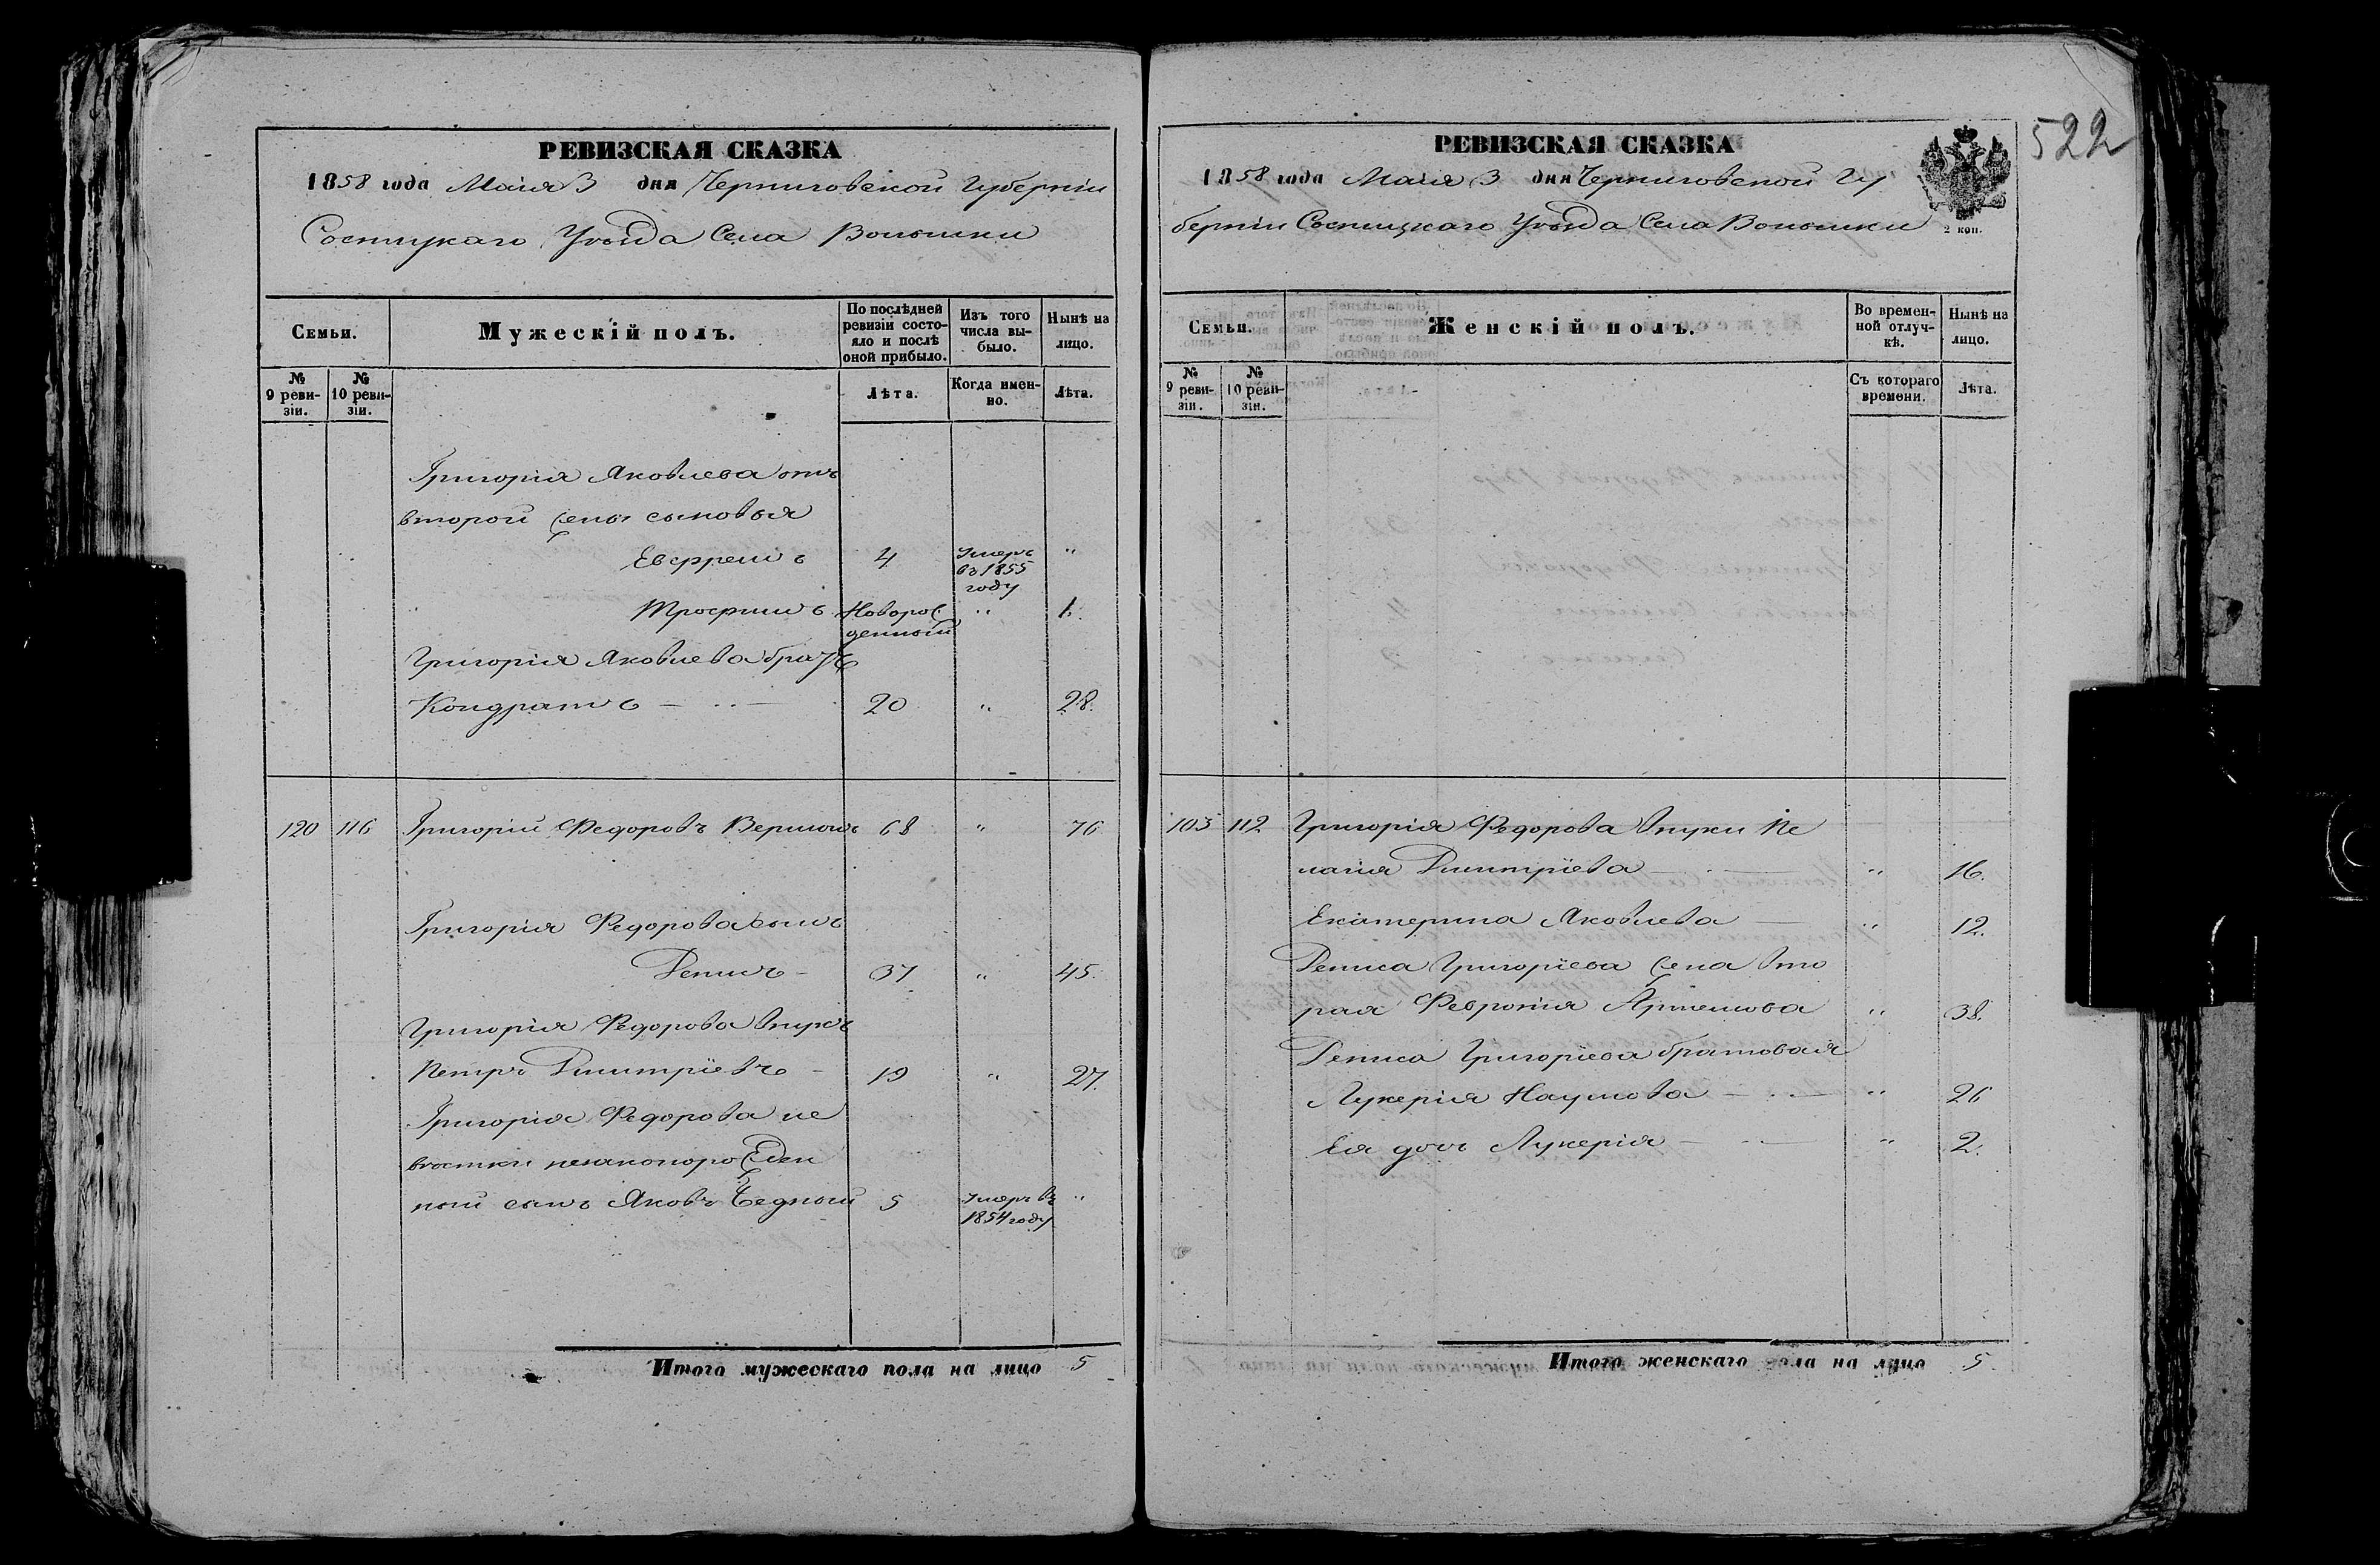 522
РЕВИЗСКАЯ СКАЗКА
1858 года Маія 3 дня Черниговской Губерніи
Сосницкаго Уѣзда Села Волынки
Семьи.
Мужескій полъ.
По послѣдней ревизіи состояло и послѣ оной прибыло.
Изъ того числа выбыло.
Нынѣ на лицо.
№ 9 ревизіи.
№ 10 ревизіи.
Лѣта.
Когда именно.
Лѣта.
Григорія Яковлева отъ
второй жены сыновья
Евфремъ 4 Умеръ въ 1855 году "
Трофимъ Новорожденный " 1.
Григорія Яковлева братъ
Кондратъ 20 " 28.
120 116 Григорій Федоровъ 68 " 76
Григорія Федорова сынъ
Денисъ 37 " 45.
Григорія Федорова внукъ
Петръ Дмитріевъ 19 " 27.
Григорія Федорова не
вѣстки незаконорожден
ный сынъ Яковъ Бедный 5 Умеръ въ 1854 году "
Итого мужескаго пола на лицо 5
РЕВИЗСКАЯ СКАЗКА
1858 года Маія 3 дня Черниговской Гу
берніи Сосницкаго Уѣзда Села Волынки
2 коп.
Семьи.
Женскій полъ.
Во временной отлучкѣ.
Нынѣ на лицо.
№ 9 ревизіи.
№ 10 ревизіи.
Съ котораго времени.
Лѣта.
103 112 Григорія Федорова внуки Пе
лагія Дмитріева " 16.
Екатерина Яковлева " 12.
Дениса Григоріева жена вто
рая Феврония Артемова " 38.
Дениса Григоріева братовая
Лукерія Наумова " 26
Ея дочь Лукерія " 2.
Итого женскаго пола на лицо 5.